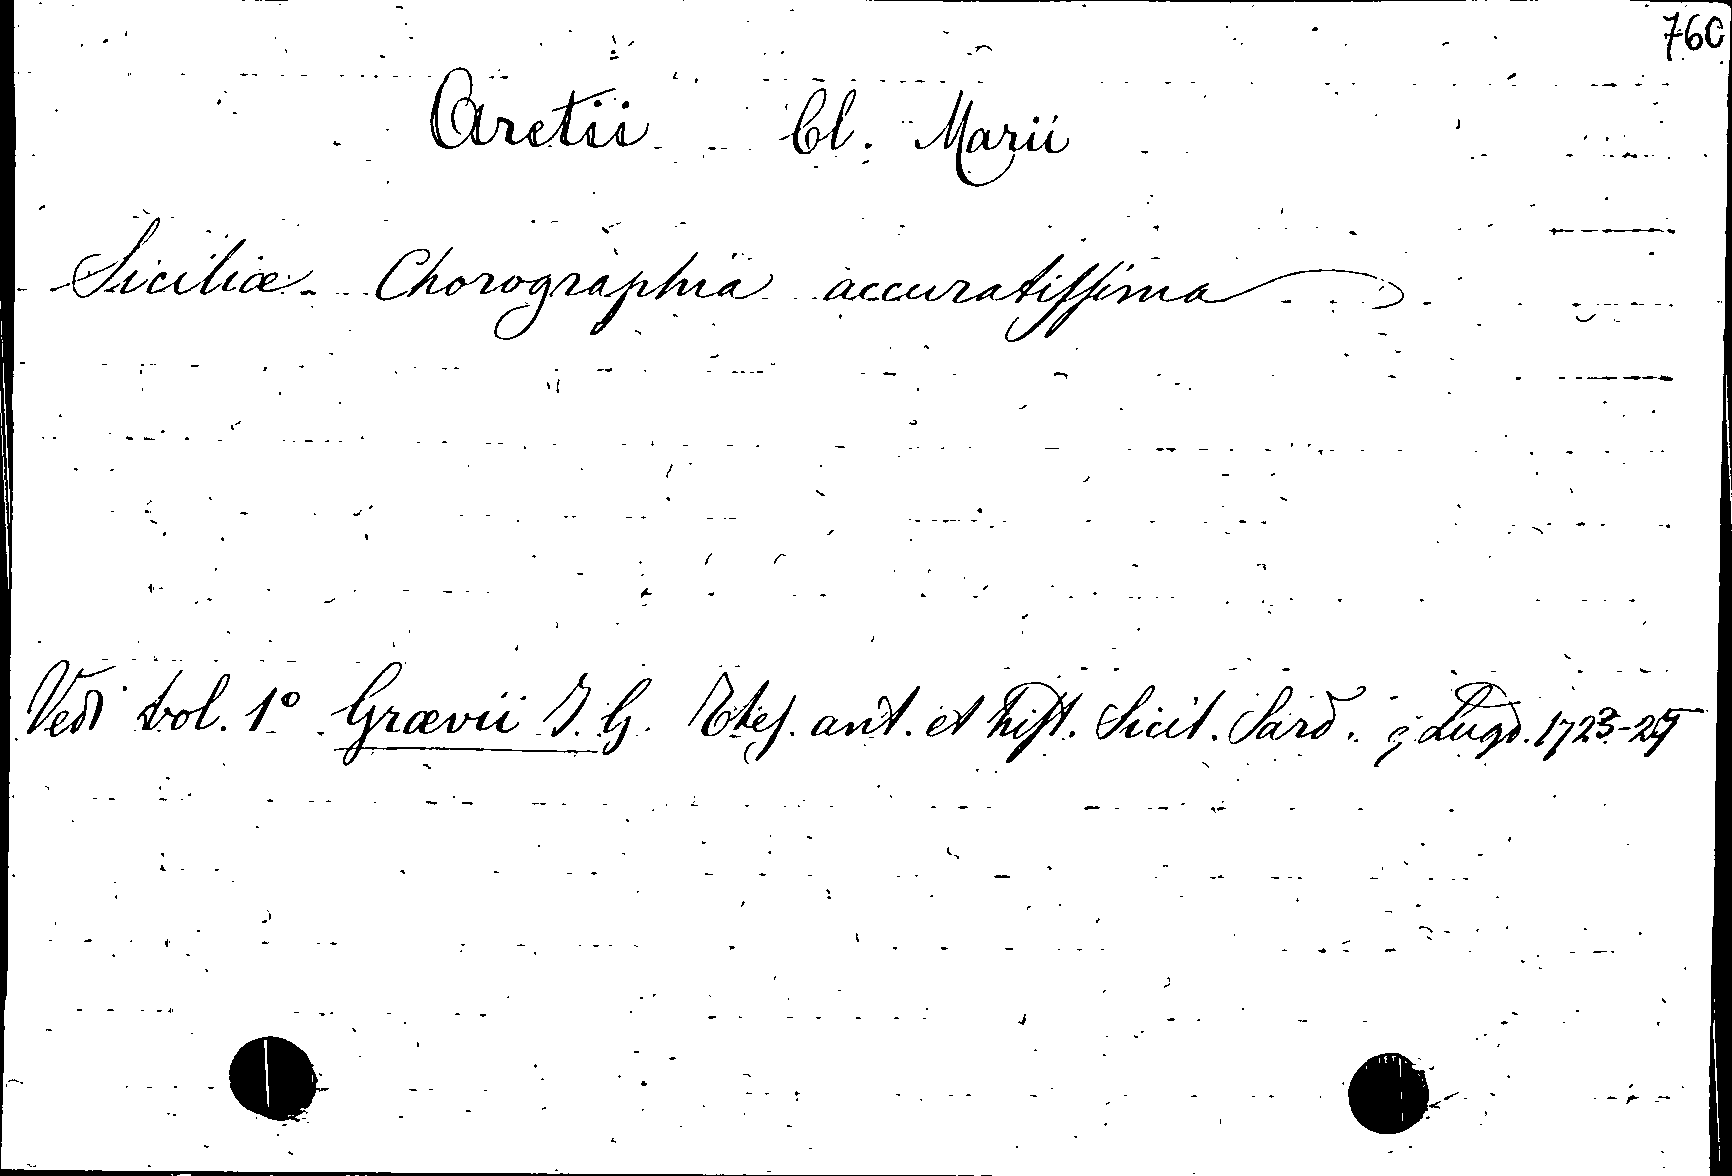 760
Aretii Cl. Marii
Siciliæ Chorographia accuratissima
Vedi vol. 1º Grævii J. G. Thes. ant. et hist. Sicil. Sard. ; Lugd. 1723-25